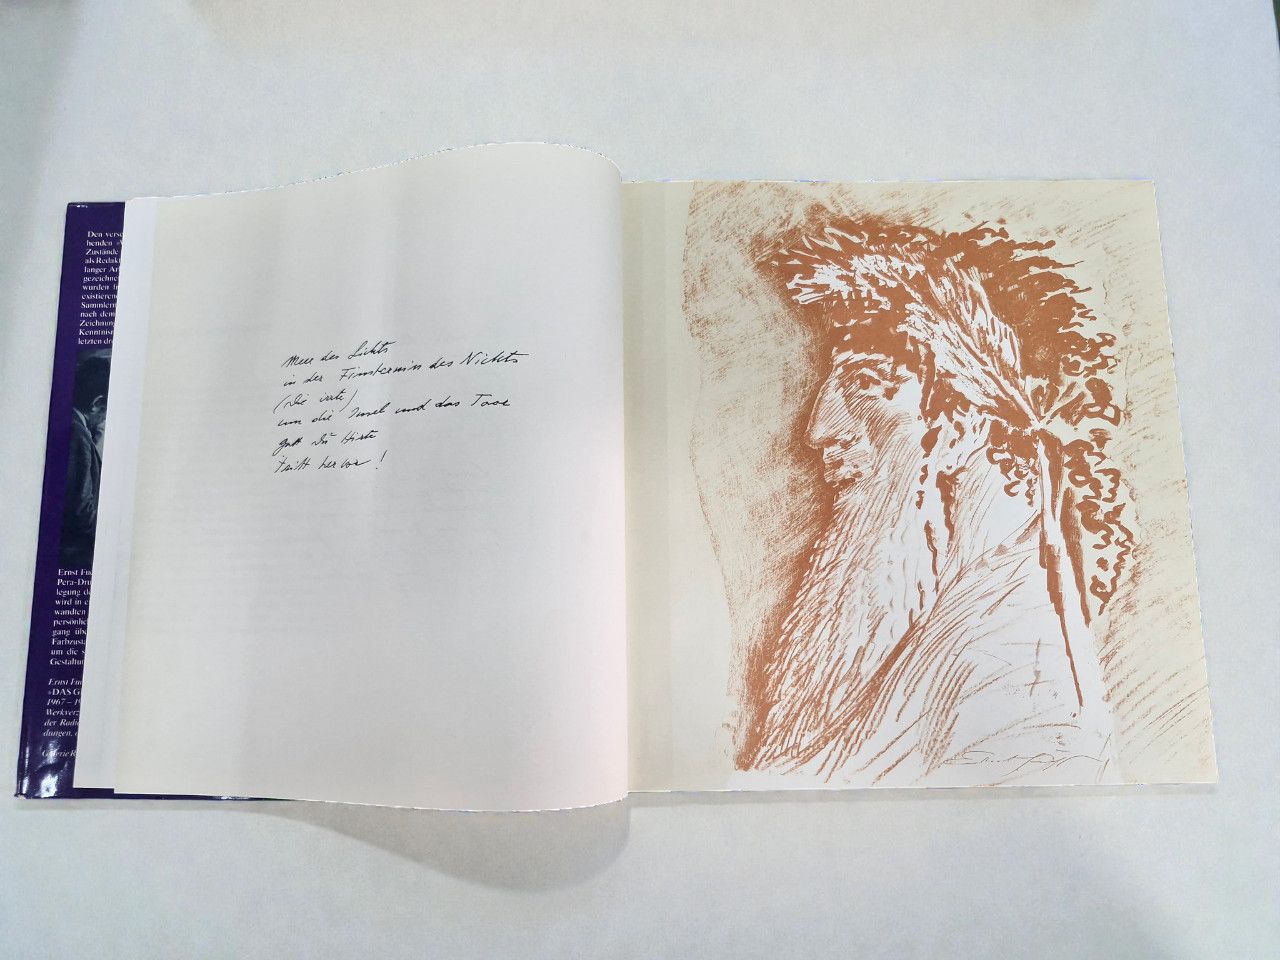 Den versc
henden »V
Zustände
als Redakt
langer Ar
gezeichne
wurden fr
existieren
Sammlern
nach dem
Zeichnung
Kenntnis
letzten dr
Ernst Fuc
Pera-Dru
legung de
wird in e
wandten
persönlic
gang üb
Farbzusta
um die s
Gestaltu
Ernst Fuc
»DAS G
1967 – 1
Werkverz
der Radie
dungen,
Galerie R
Meer des Lichts
in der Finsternis des Nichts
um die Insel und das Tor
Gott Du Hirte
tritt hervor!